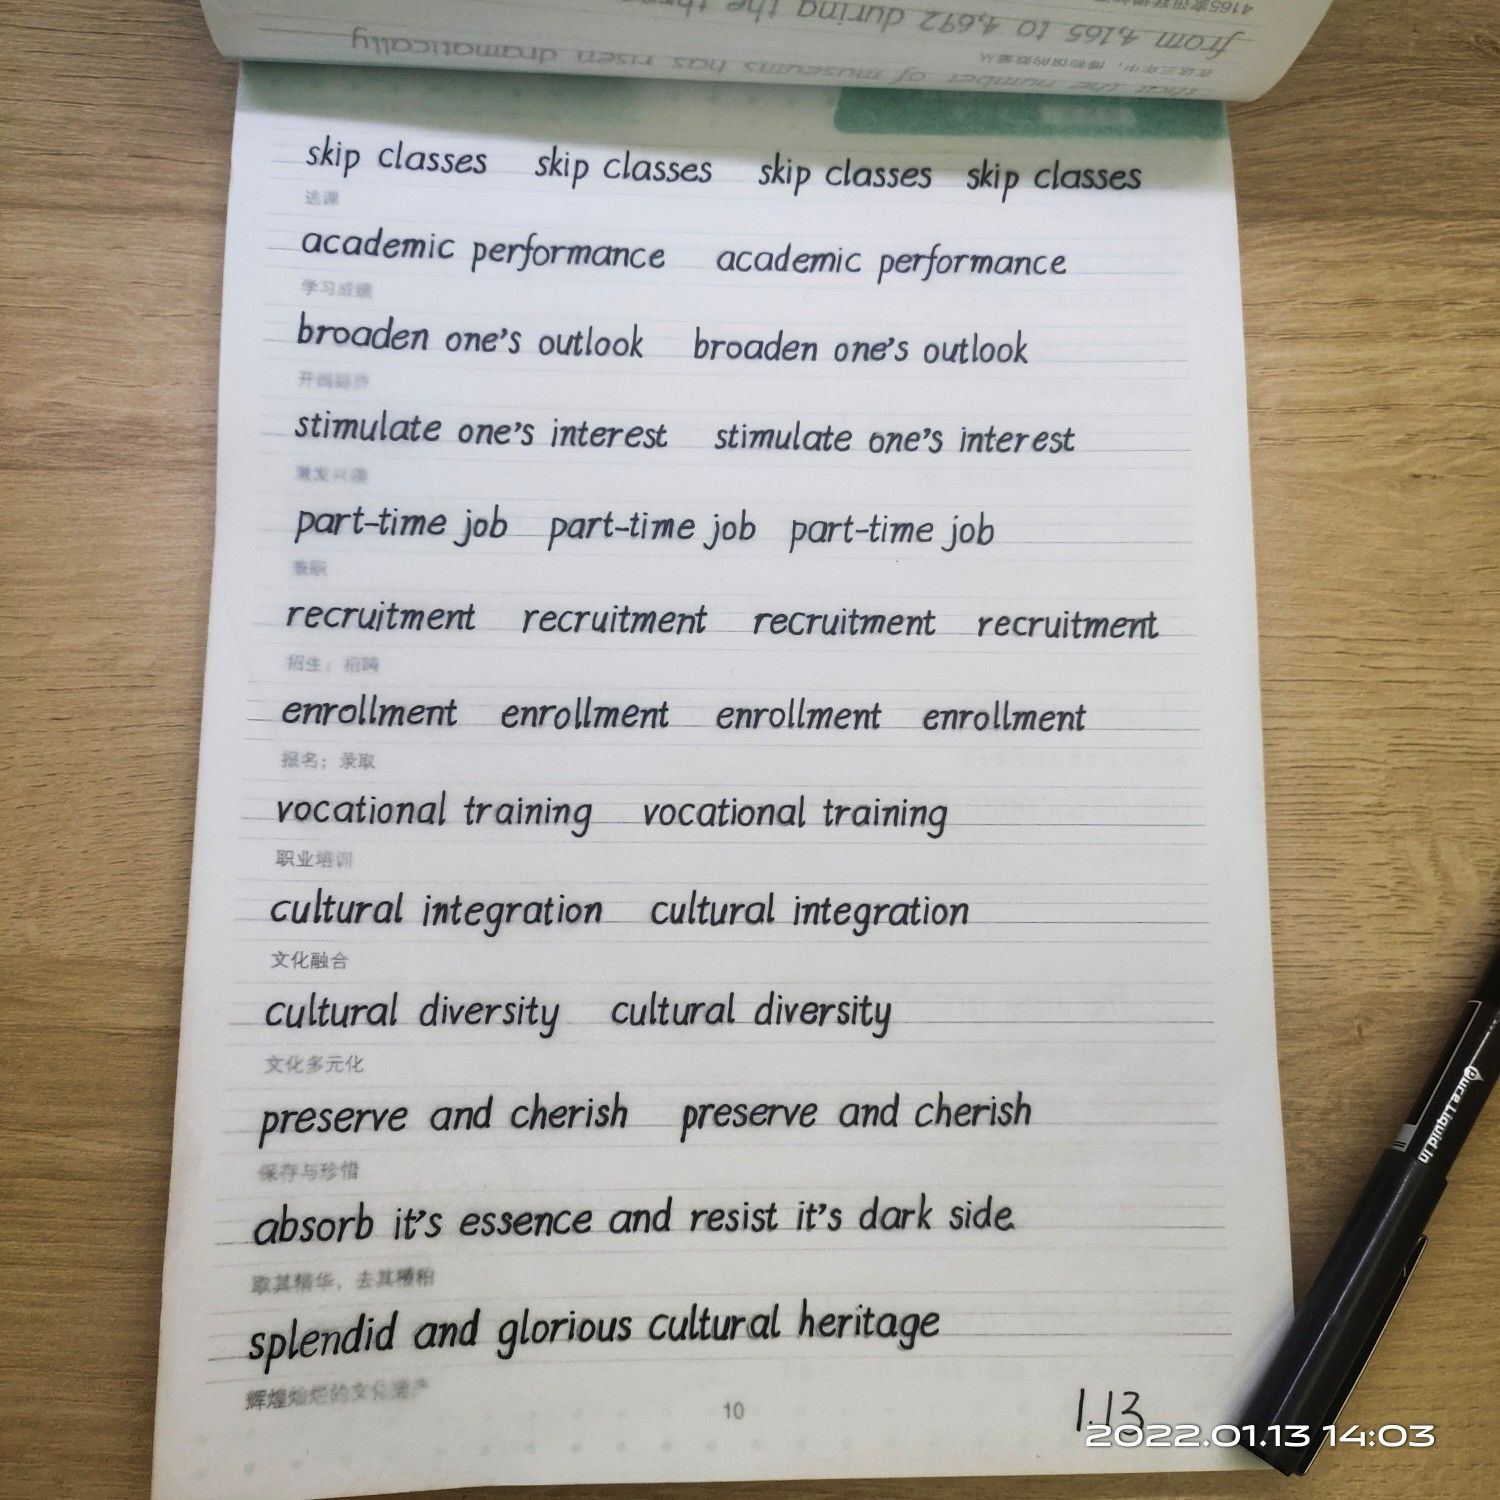 from 4,165 to 4,692 during the
that the number of museums has risen dramatically
skip classes skip classes skip classes skip classes
逃课
academic performance academic performance
学习成绩
broaden one's outlook broaden one's outlook
开阔眼界
stimulate one's interest stimulate one's interest
激发兴趣
part-time job part-time job part-time job
兼职
recruitment recruitment recruitment recruitment
招生；招聘
enrollment enrollment enrollment enrollment
报名；录取
vocational training vocational training
职业培训
cultural integration cultural integration
文化融合
cultural diversity cultural diversity
文化多元化
preserve and cherish preserve and cherish
保存与珍惜
absorb it's essence and resist it's dark side
取其精华，去其糟粕
splendid and glorious cultural heritage
辉煌灿烂的文化遗产
10
1.13
2022.01.13 14:03
Pure Liquid.In